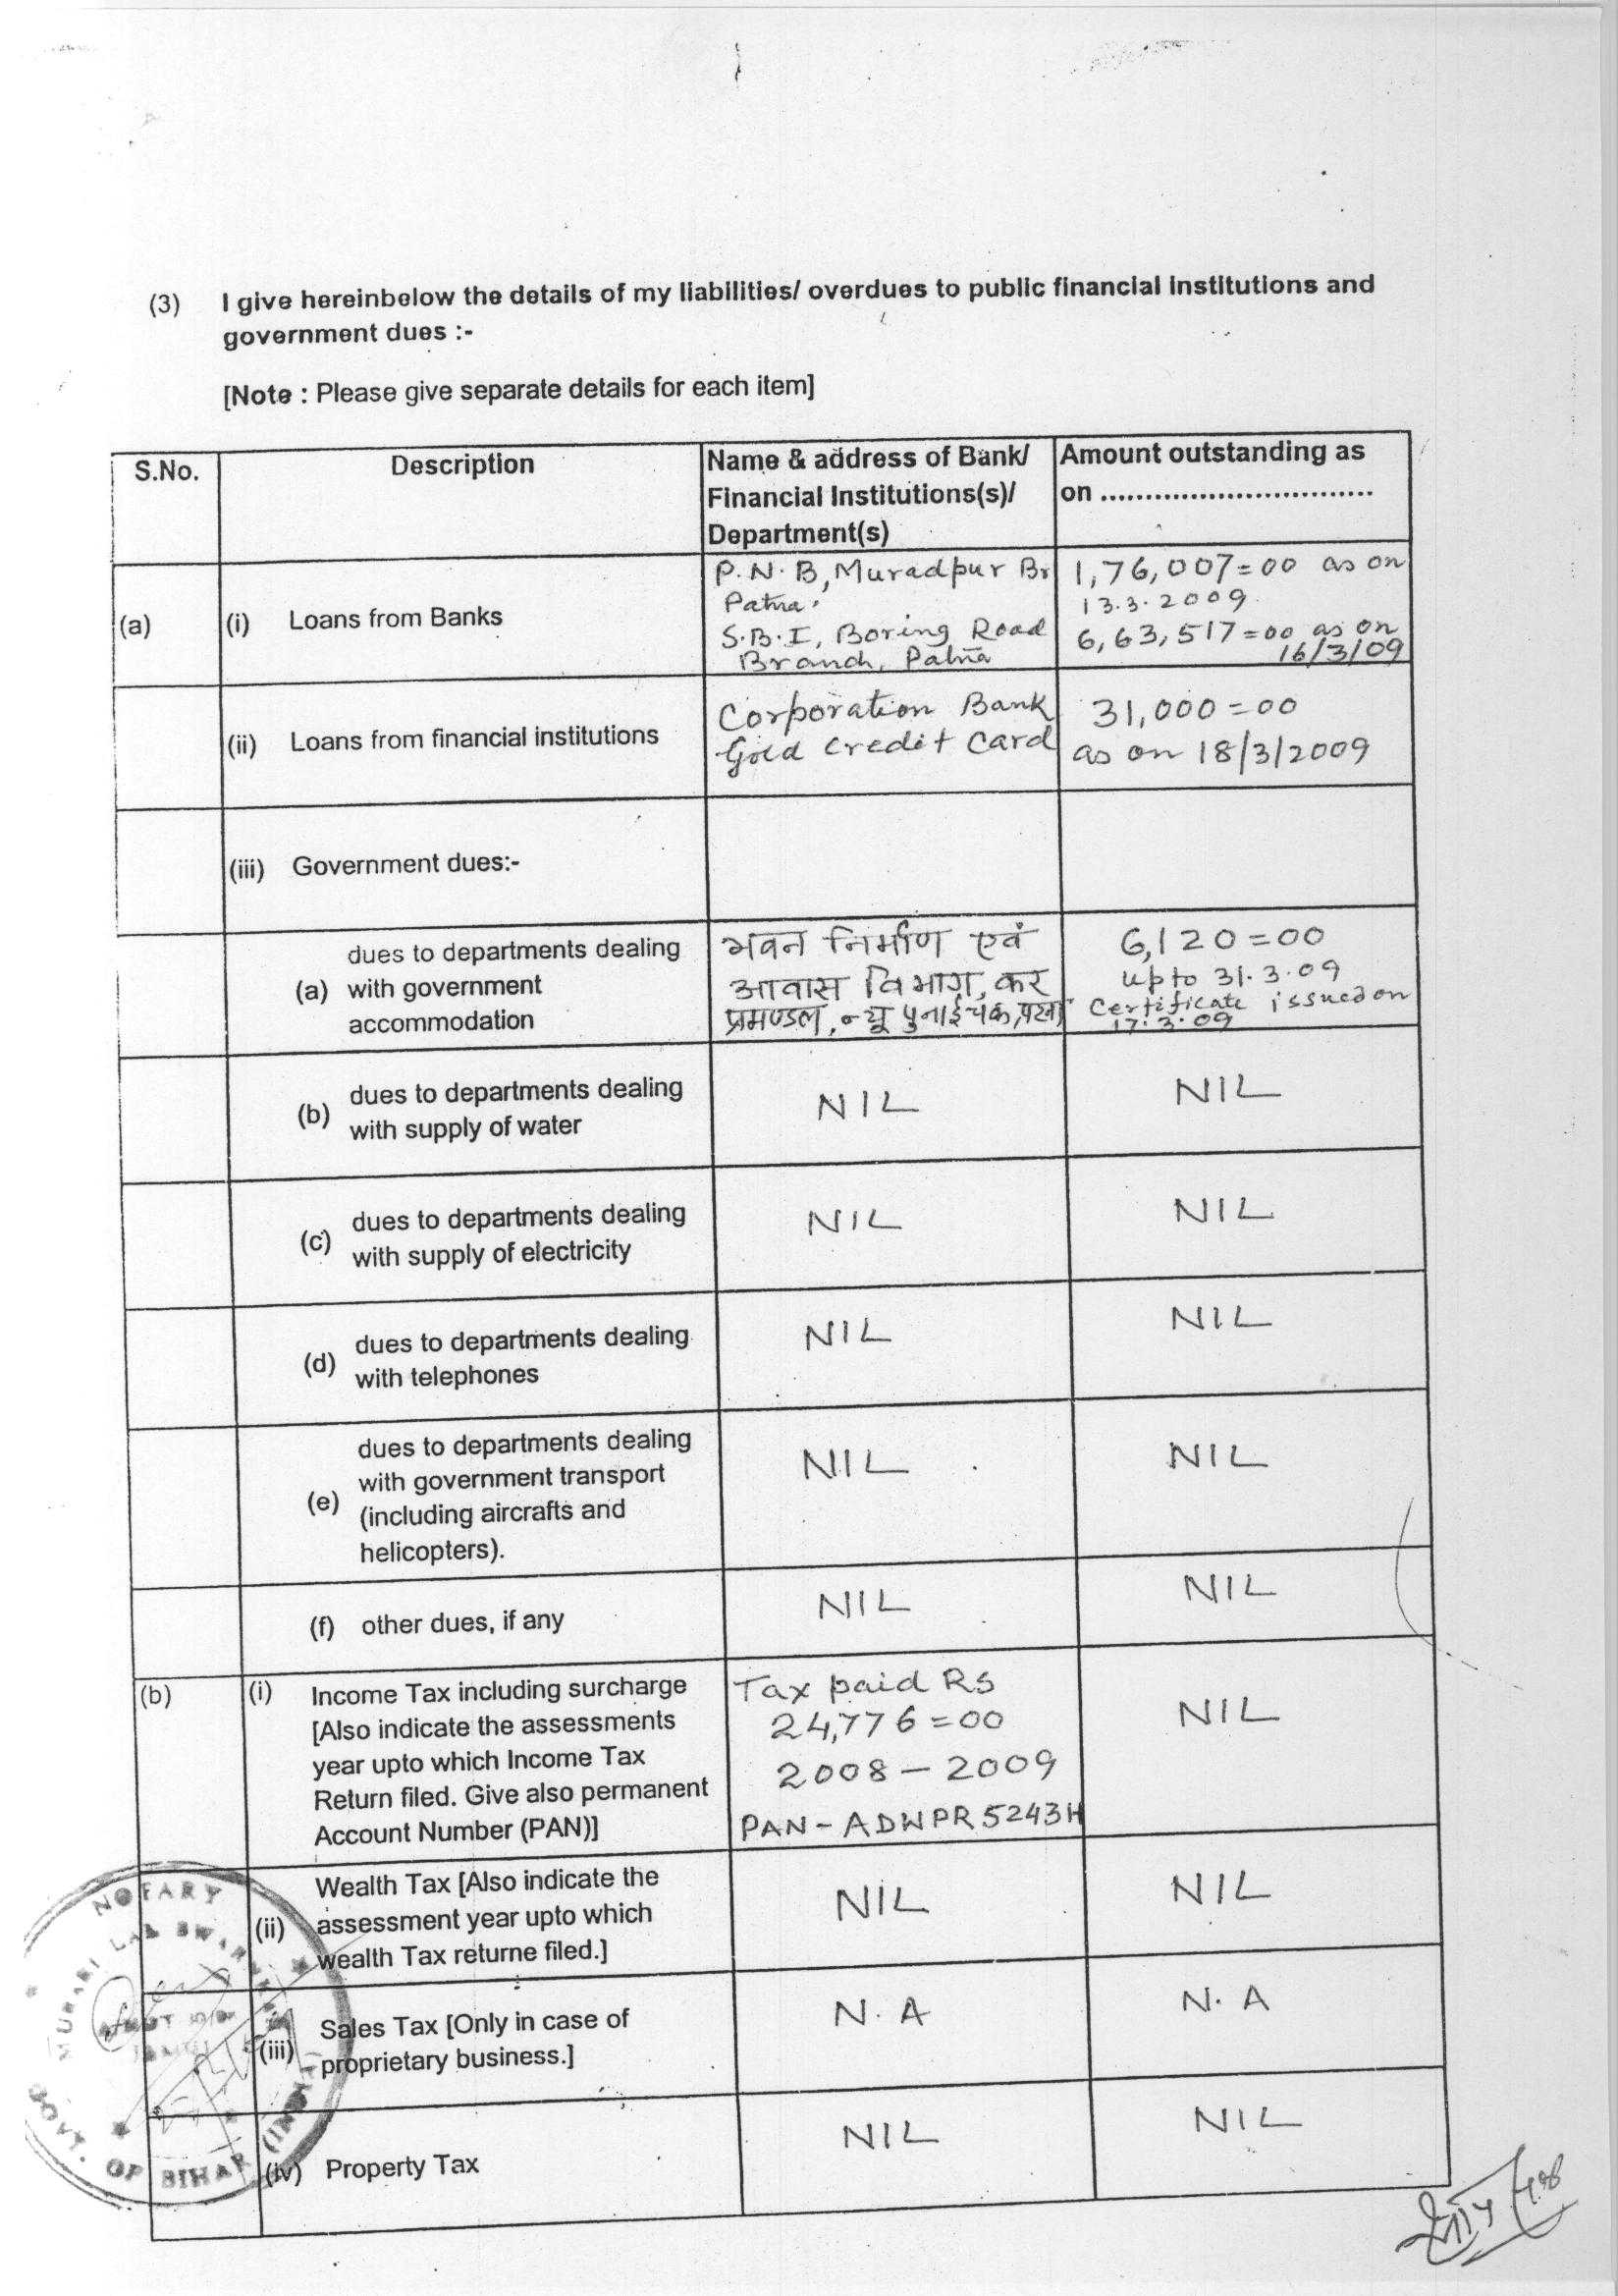 (3) I give hereinbelow the details of my liabilities/ overdues to public financial institutions and
government dues :-
[Note : Please give separate details for each item]
S.No. Description Name & address of Bank/ Amount outstanding as
Financial Institutions(s)/ on ..............................
Department(s)
(a) (i) Loans from Banks
P.N.B, Muradpur Br 1,76,007=00 as on
Patna. 13.3.2009
S.B.I, Boring Road 6,63,517=00 as on
Branch, Patna 16/3/09
(ii) Loans from financial institutions
Corporation Bank 31,000=00
Gold Credit Card as on 18/3/2009
(iii) Government dues:-
(a) dues to departments dealing
with government
accommodation
भवन निर्माण एवं 6,120=00
आवास विभाग, कर upto 31.3.09
प्रमण्डल, न्यू पुनाईचक, पटना Certificate issued on
17.3.09
(b) dues to departments dealing
with supply of water
NIL NIL
(c) dues to departments dealing
with supply of electricity
NIL NIL
(d) dues to departments dealing
with telephones
NIL NIL
(e) dues to departments dealing
with government transport
(including aircrafts and
helicopters).
NIL NIL
(f) other dues, if any NIL NIL
(b) (i) Income Tax including surcharge
[Also indicate the assessments
year upto which Income Tax
Return filed. Give also permanent
Account Number (PAN)]
Tax paid Rs
24,776=00 NIL
2008 - 2009
PAN - ADWPR5243H
(ii) Wealth Tax [Also indicate the
assessment year upto which
wealth Tax returne filed.]
NIL NIL
(iii) Sales Tax [Only in case of
proprietary business.]
N.A N.A
(iv) Property Tax NIL NIL
NOTARY
GOVT. OF BIHAR (INDIA)